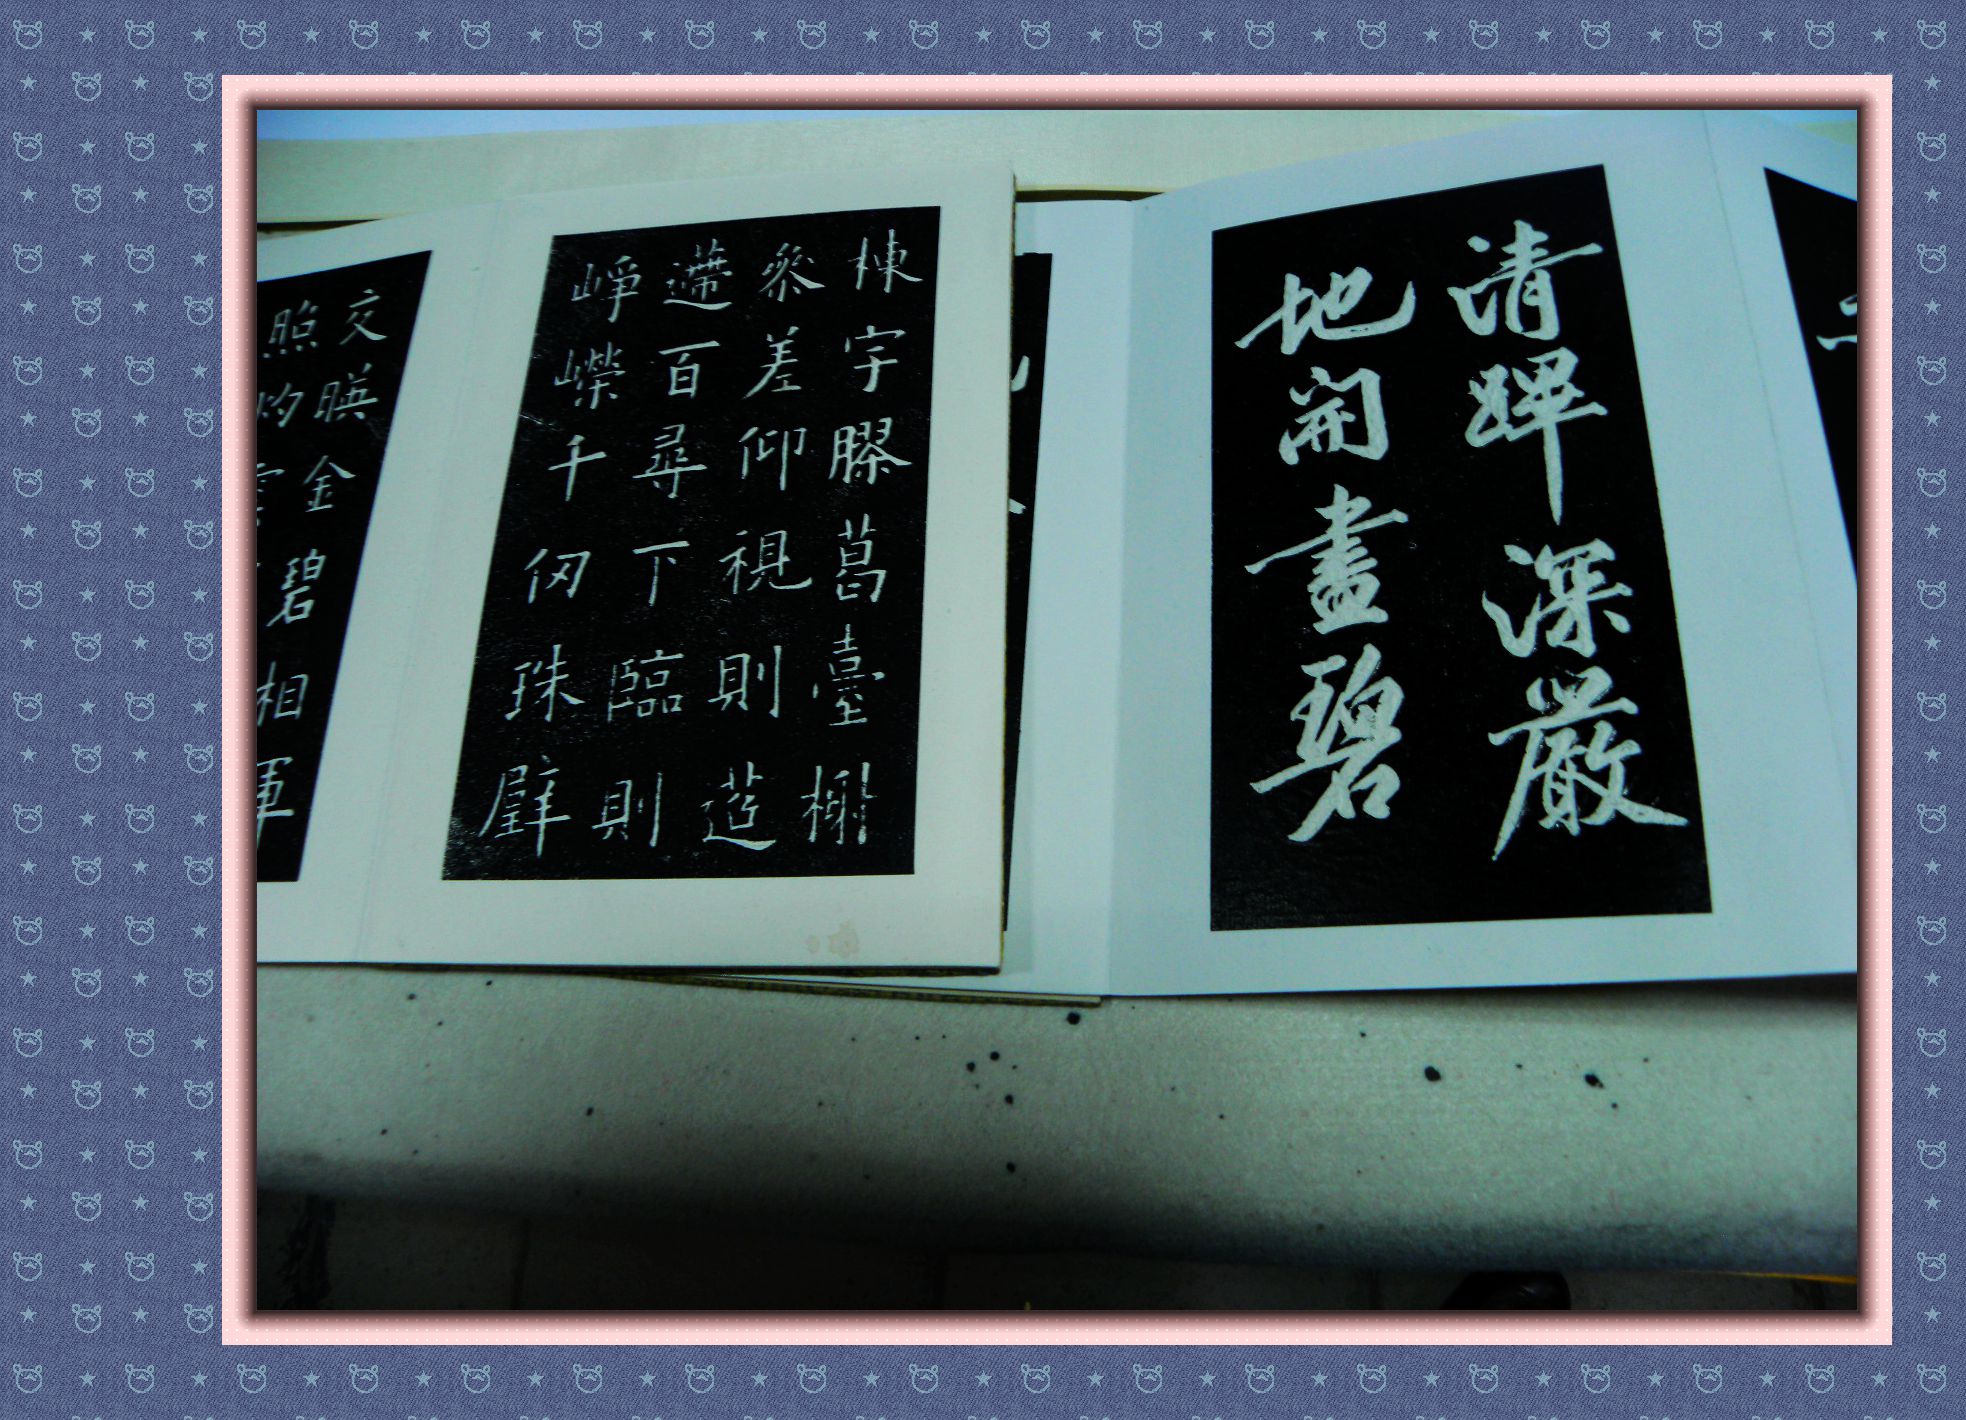 清暉深嚴
地開盡碧
棟宇膠葛臺榭
參差仰視則迢
遰百尋下臨則
崢嶸千仞珠壁
交暎金碧相暉
照灼雲